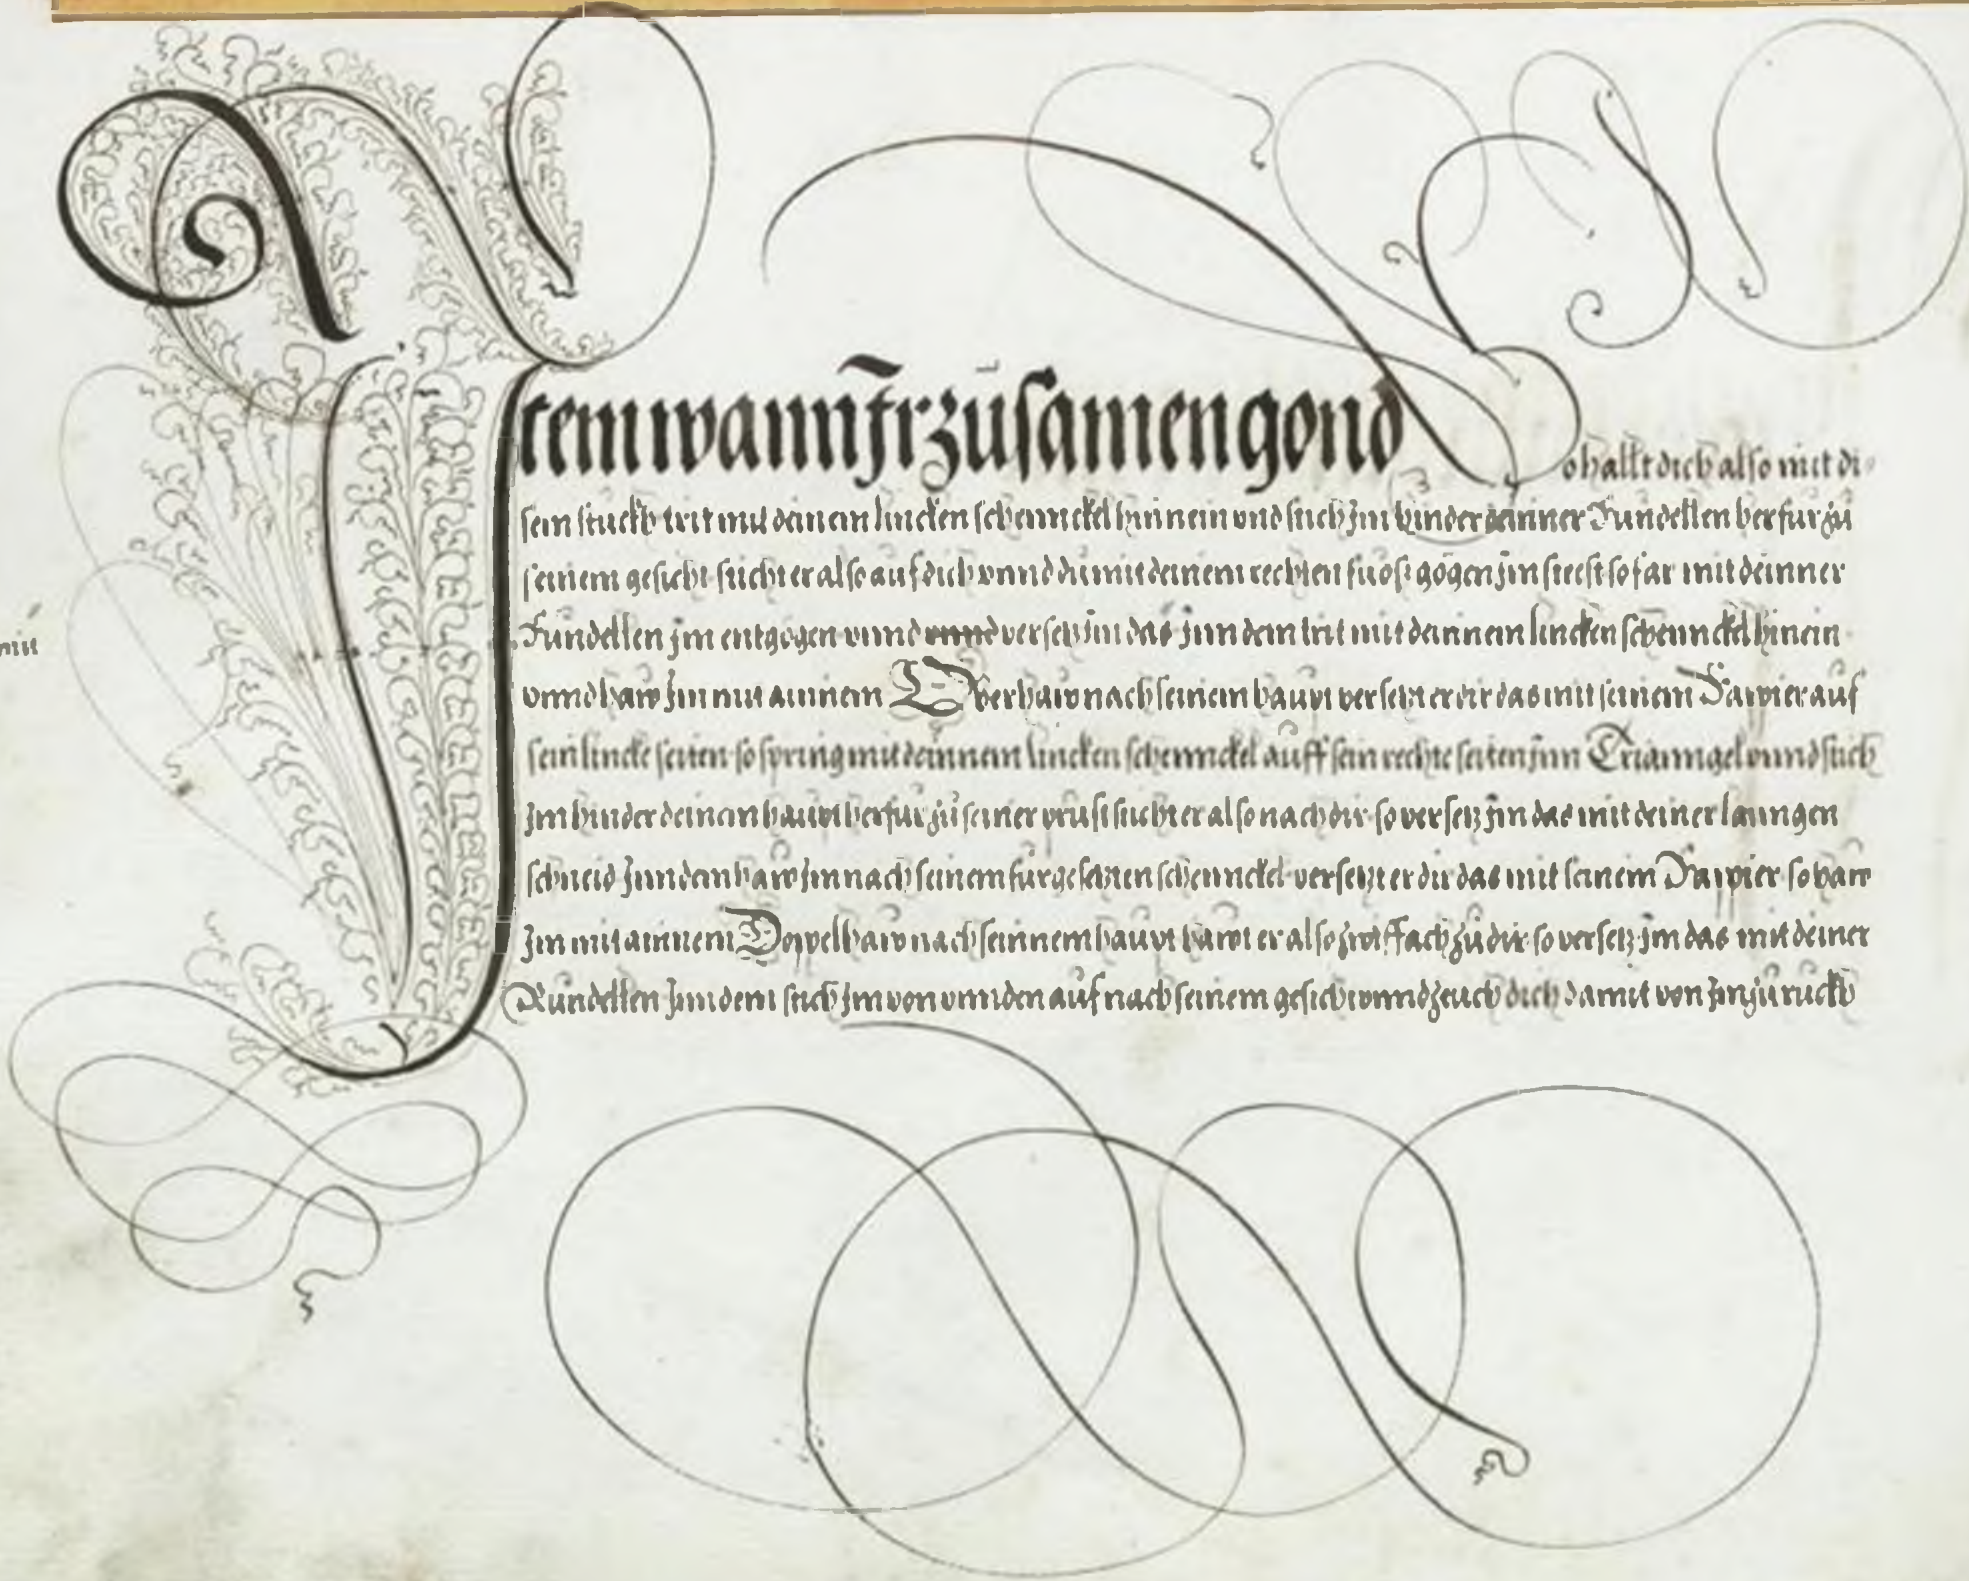 Item wann Jr zu samen gond So hallt dich also mit di-
sem stuckh trit mit deinem lincken schennckel hinnein vnd stich Jm hinder deinner Rundellen herfur zů
seinem gesicht sticht er also auf dich vnnd du mit deinem rechten fuosz gögen Jm steest so far mit deinner
Rundellen Jm entgögen vnnd vnnd versetz Jm das Jnn dem trit mit deinnem lincken schennckel hinein
vnnd haw Jm mit ainnem Oberhaw nach seinem haupt versetzt er dir das mit seinem Rappier auf
sein lincke seiten so spring mit deinnem lincken schennckel auff sein rechte seiten Jnn Trianngel vnnd stich
Jm hinder deinem haupt herfur zů seiner prust sticht er also nach dir so versetz Jm das mit deiner lanngen
schneid Jnn dem haw Jm nach seinem furgesetzten schennckel versetzt er dir das mit seinem Rappier so haw
Jm mit ainnem Doppelhaw nach seinnem haupt hawt er also zwiffach zů dir so versetz Jm das mit deiner
Rundellen Jnn dem stich Jm von vnnden auf nach seinem gesicht vnnd zeuch dich damit von Jm zů ruckh
mit